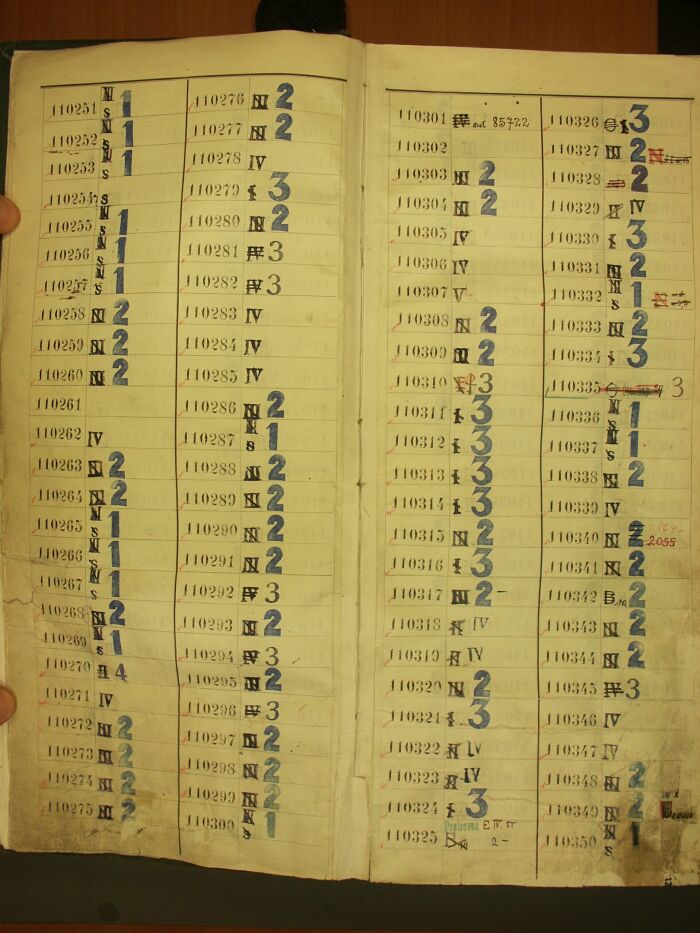 110251 N s 1
110252 N s 1
110253 N s 1
110254 s
110255 N s 1
110256 N s 1
110257 N s 1
110258 N 2
110259 N 2
110260 N 2
110261
110262 IV
110263 N 2
110264 N 2
110265 N s 1
110266 N s 1
110267 N s 1
110268 N 2
110269 N s 1
110270 4
110271 IV
110272 N 2
110273 N 2
110274 N 2
110275 N 2
110276 N 2
110277 N 2
110278 IV
110279 I 3
110280 N 2
110281 IV 3
110282 IV 3
110283 IV
110284 IV
110285 IV
110286 N 2
110287 N s 1
110288 N 2
110289 N 2
110290 N 2
110291 N 2
110292 IV 3
110293 N 2
110294 IV 3
110295 N 2
110296 IV 3
110297 N 2
110298 N 2
110299 N 2
110300 N s 1
110301 IV ad 85722
110302
110303 N 2
110304 N 2
110305 IV
110306 IV
110307 V
110308 N 2
110309 N 2
110310 3
110311 I 3
110312 I 3
110313 I 3
110314 I 3
110315 N 2
110316 I 3
110317 N 2 –
110318 IV
110319 IV
110320 N 2
110321 I 3
110322 IV
110323 IV
110324 I 3
110325 2 –
110326 I 3
110327 N 2 N
110328 2
110329 IV
110330 I 3
110331 N 2
110332 N s 1 N
110333 N 2
110334 I 3
110335 3
110336 N s 1
110337 N s 1
110338 N 2
110339 IV
110340 N 2 2055
110341 N 2
110342 B 2
110343 N 2
110344 N 2
110345 IV 3
110346 IV
110347 IV
110348 N 2
110349 N 2
110350 N s 1